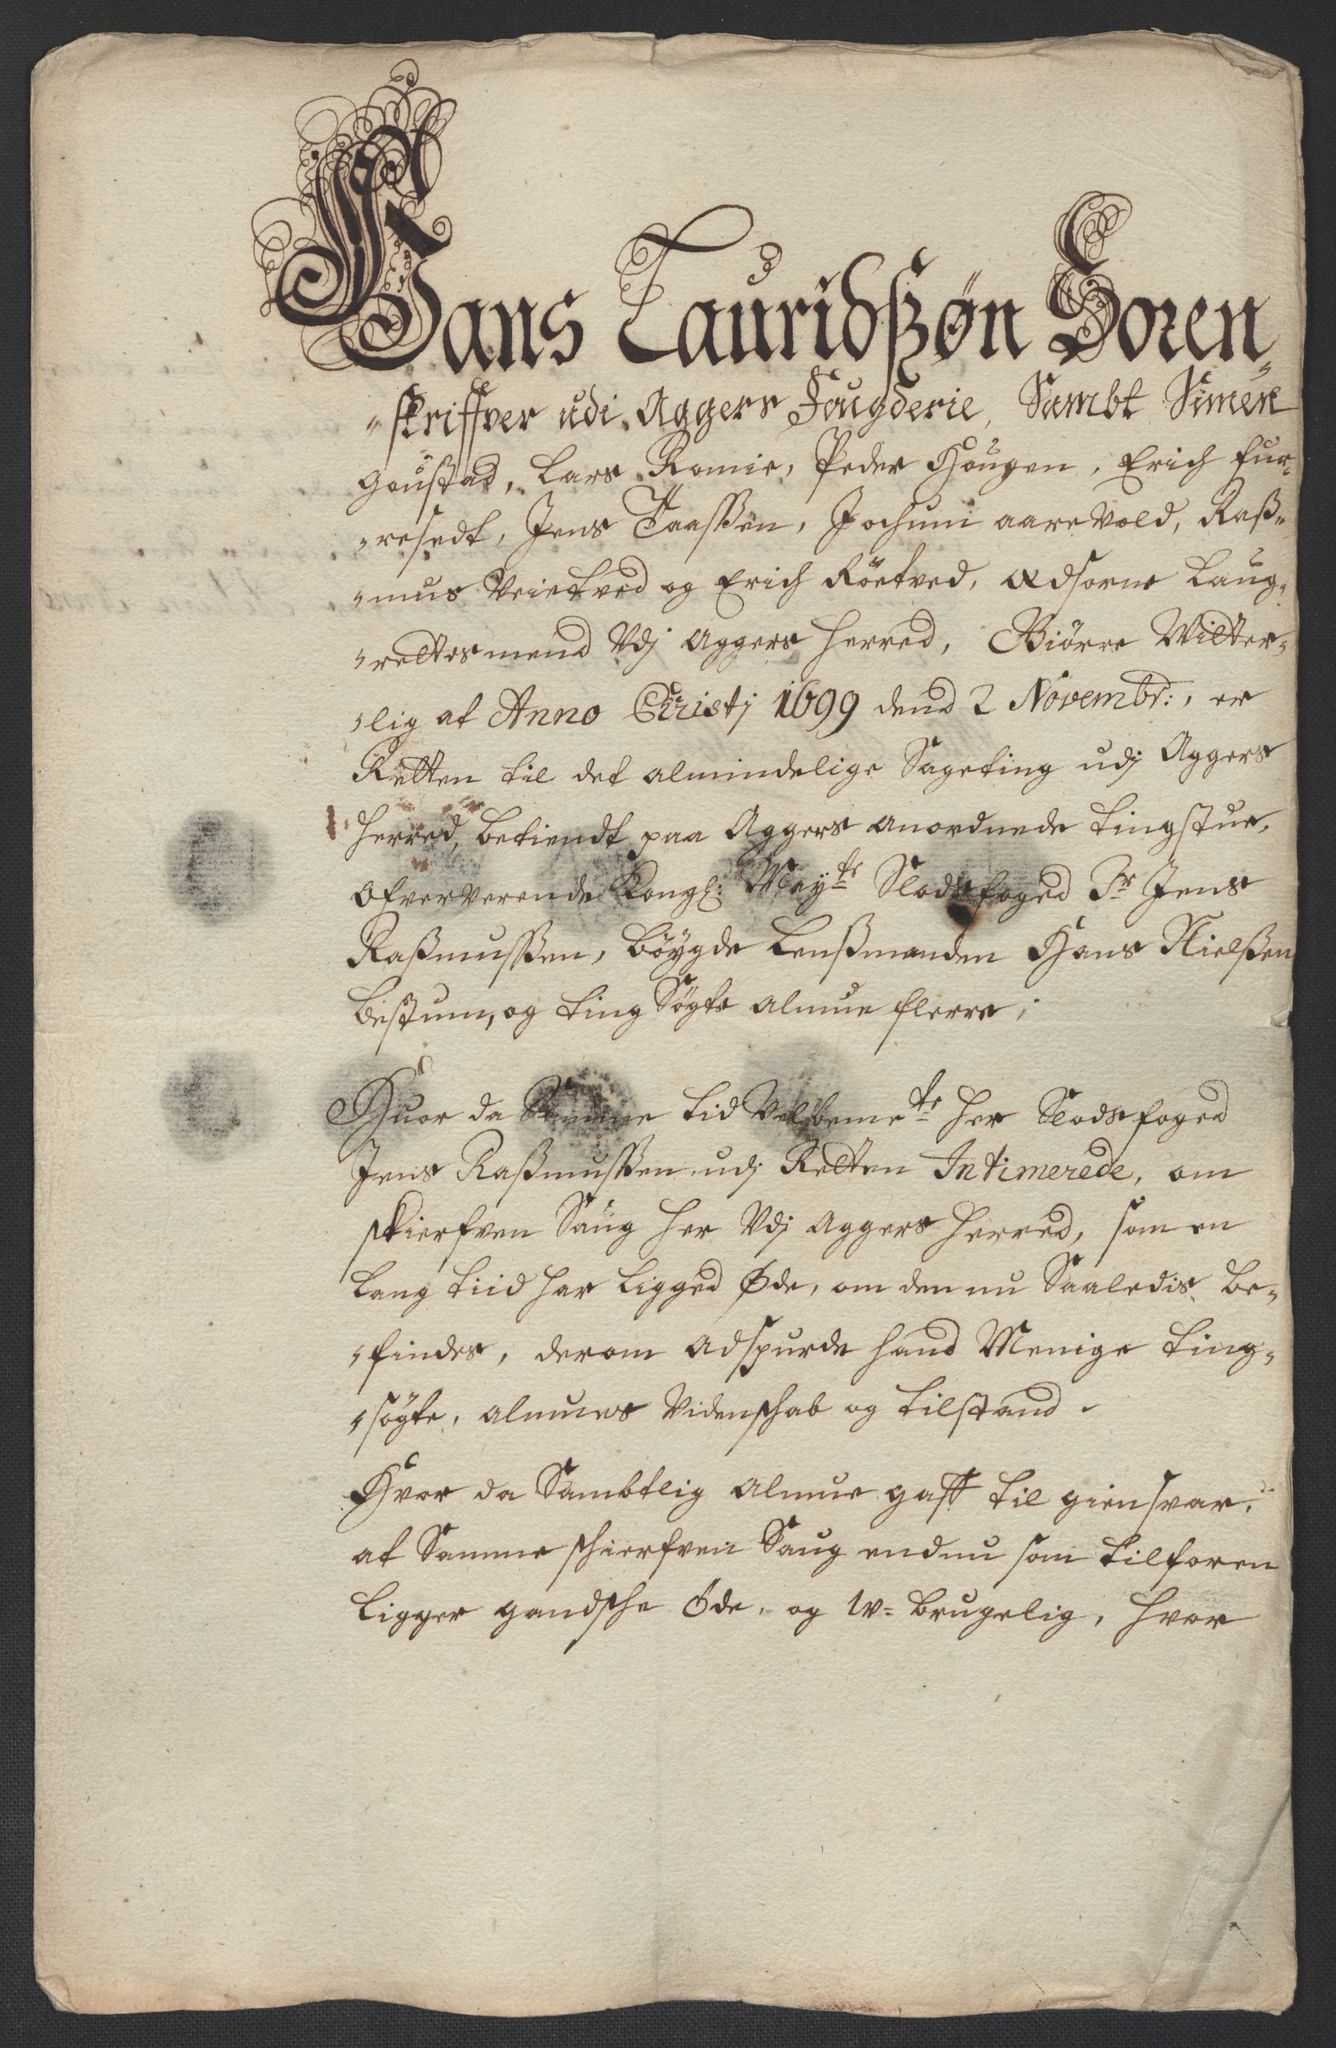 Hans Lauridszøn Soren-
-skriffver udi Aggers Fougderie, Sambt Simen
Goustad, Lars Romie, Peder Hougen, Erich Fur-
-resedt, Jens Taaßen, Jochum aarevold, Raß-
-mus Veietved og Erich Röetved, Edsorne Laug-
-rettesmend Vdj Aggers Herred, Giörre Witter-
-lig at Anno Christj 1699 dend 2 Novembr:, er
Retten til det almindelige Sageting udj Aggers
Herred, betiendt paa Aggers anordnede tingstue,
Ofververende Kongl: Mayts Slodtsfoged Sr Jens
Raßmußen, böygde Lenßmanden Hans Nielßen
Bestum, og ting Søgte almue flerre;
Huor da Samme tid Velbemte Her Slodsfoged
Jens Raßmußen udj Retten Intimerede, om
skierfven Saug her Vdj Aggers Herred, som en
lang tiid har ligged Øde, om den nu Saaledis be-
-findes, derom adspurde hand Menige ting-
-søgte, almues Videnschab og tilstand.
Hvor da Sambtlig Almue gaff til giensvar,
at Samme schierfven Saug endnu som tilforen
ligger gandsche Øde, og w= brugelig, hvor